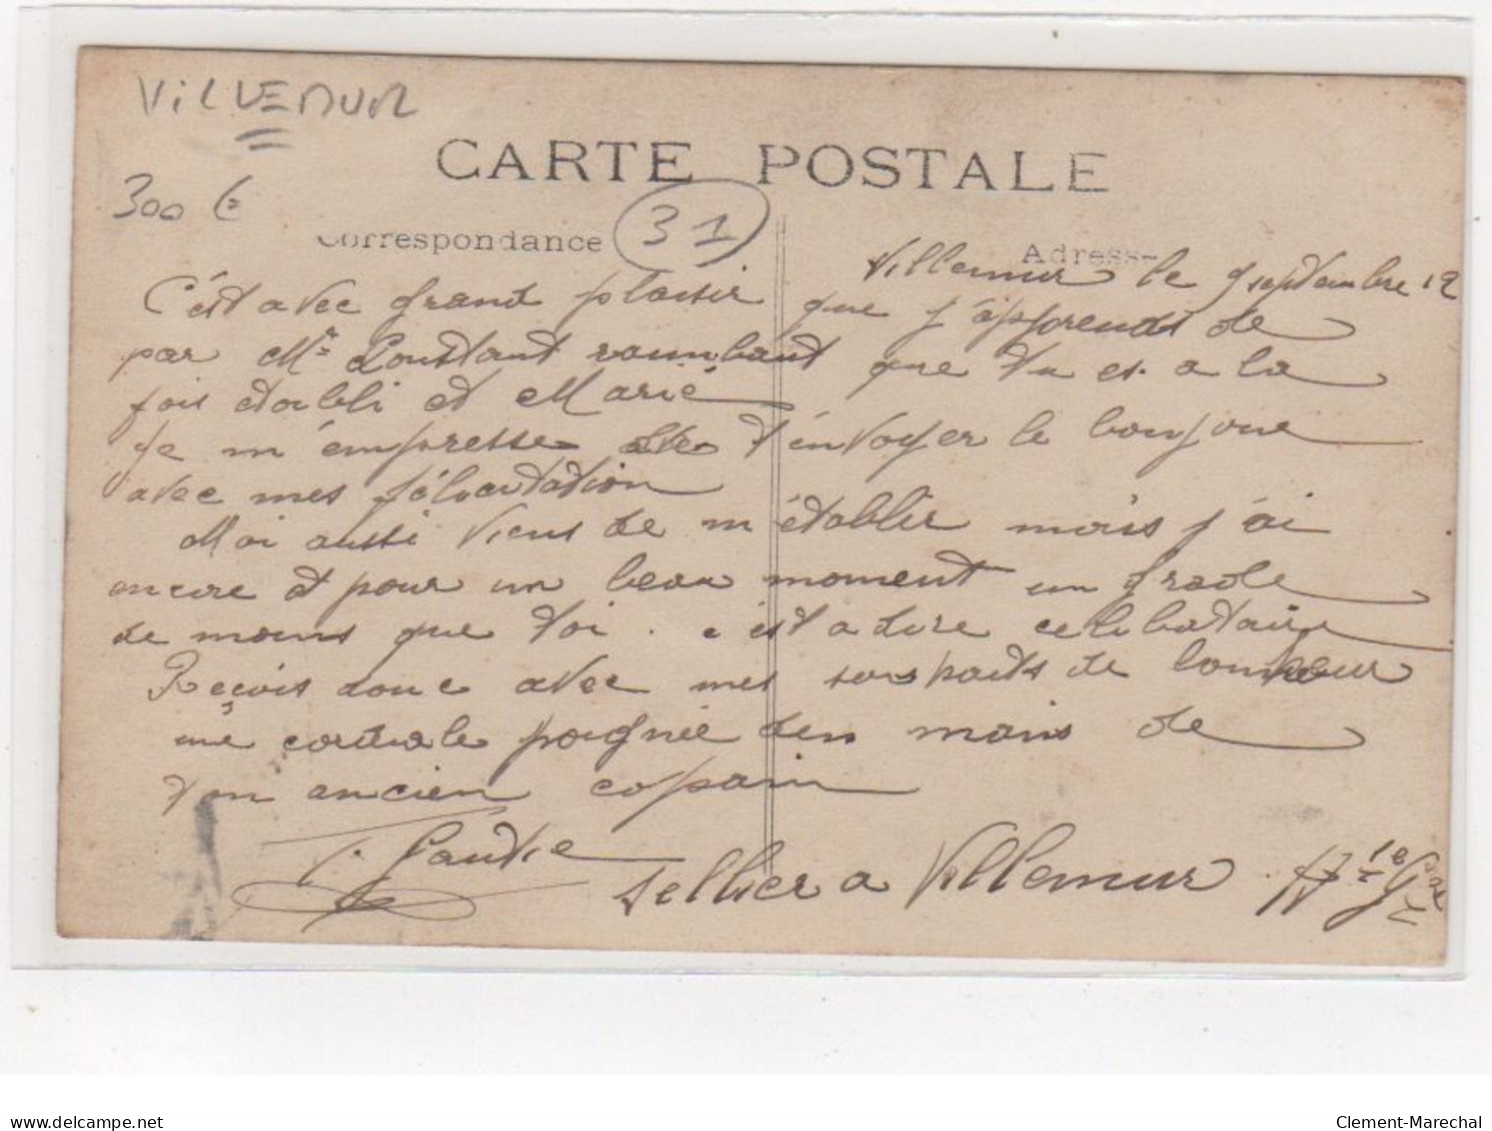 VILLEMUR
CARTE POSTALE
300 €
31
Correspondance
Adresse
Villemur le 9 septembre 12
C'est avec grand plaisir que j'apprends de
par Mr Constant que tu es a la
fois etabli et Marié
Je m'empresse de t'envoyer le bonjour
avec mes félicitation
Moi aussi viens de m'établir mais j'ai
encore et pour un beau moment un grade
de moins que toi. c'est a dire celibataire
Reçois donc avec mes souhaits de bonheur
une cordiale poignée de mains de
ton ancien copain
Sellier a Villemur
www.delcampe.net
Clement-Marechal